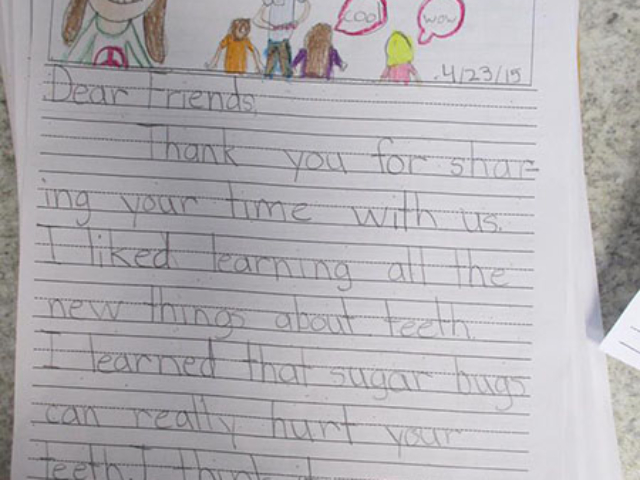 cool
wow
4/23/15
Dear Friends,
Thank you for shar-
ing your time with us.
I liked learning all the
new things about teeth.
I learned that sugar bugs
can really hurt your
teeth. I think